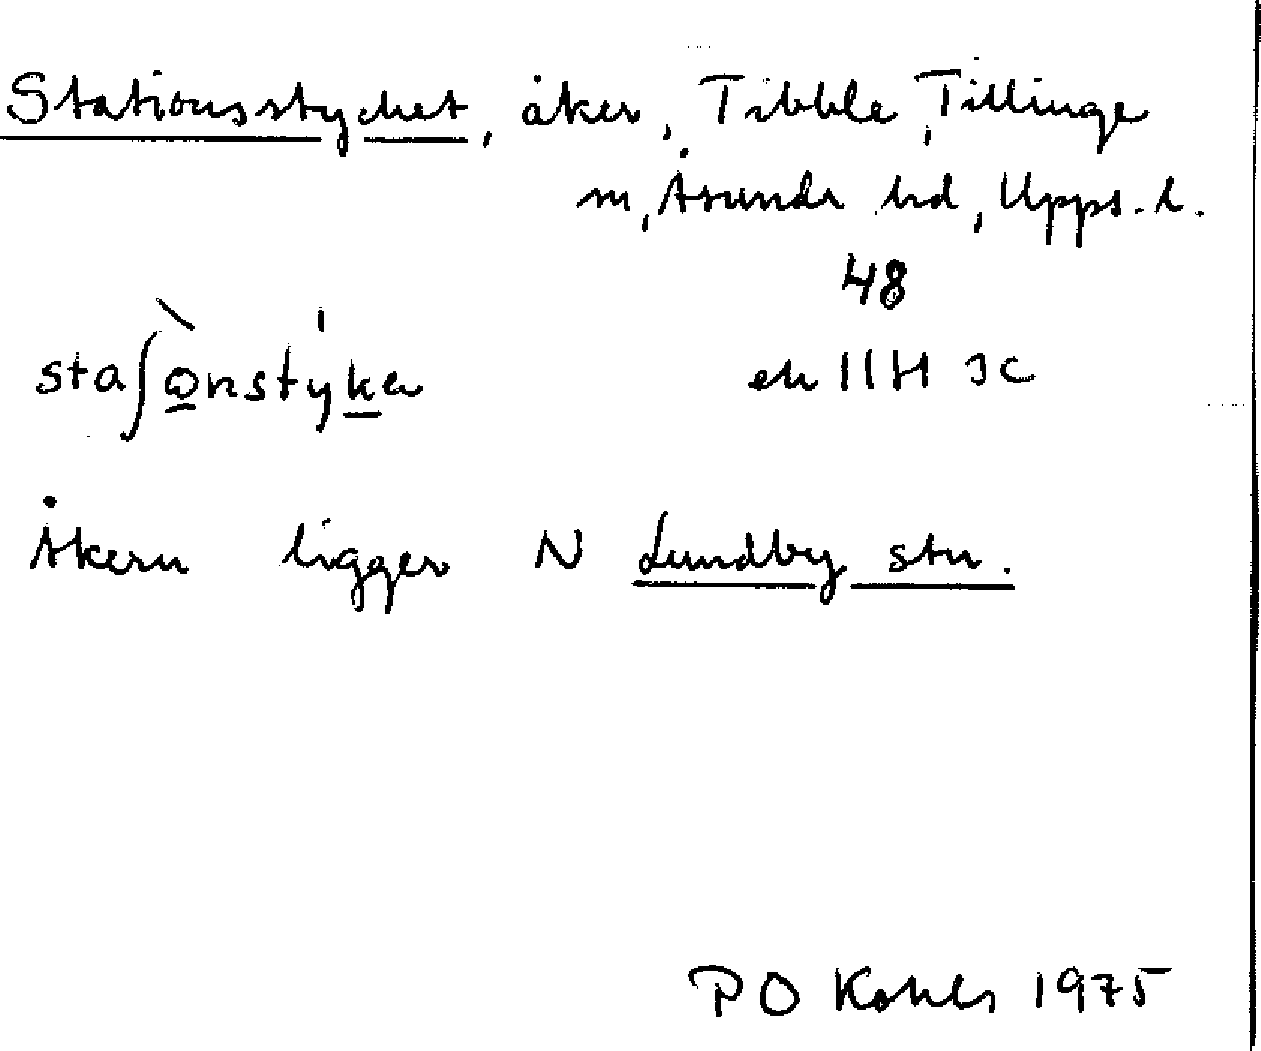 Stationsstycket, åker, Tibble, Tillinge
sn, Åsunda hd, Upps. l.
48
ek 11H 3c
staʃònstýka
Åkern ligger N Lundby stn.
P O Kohls 1975